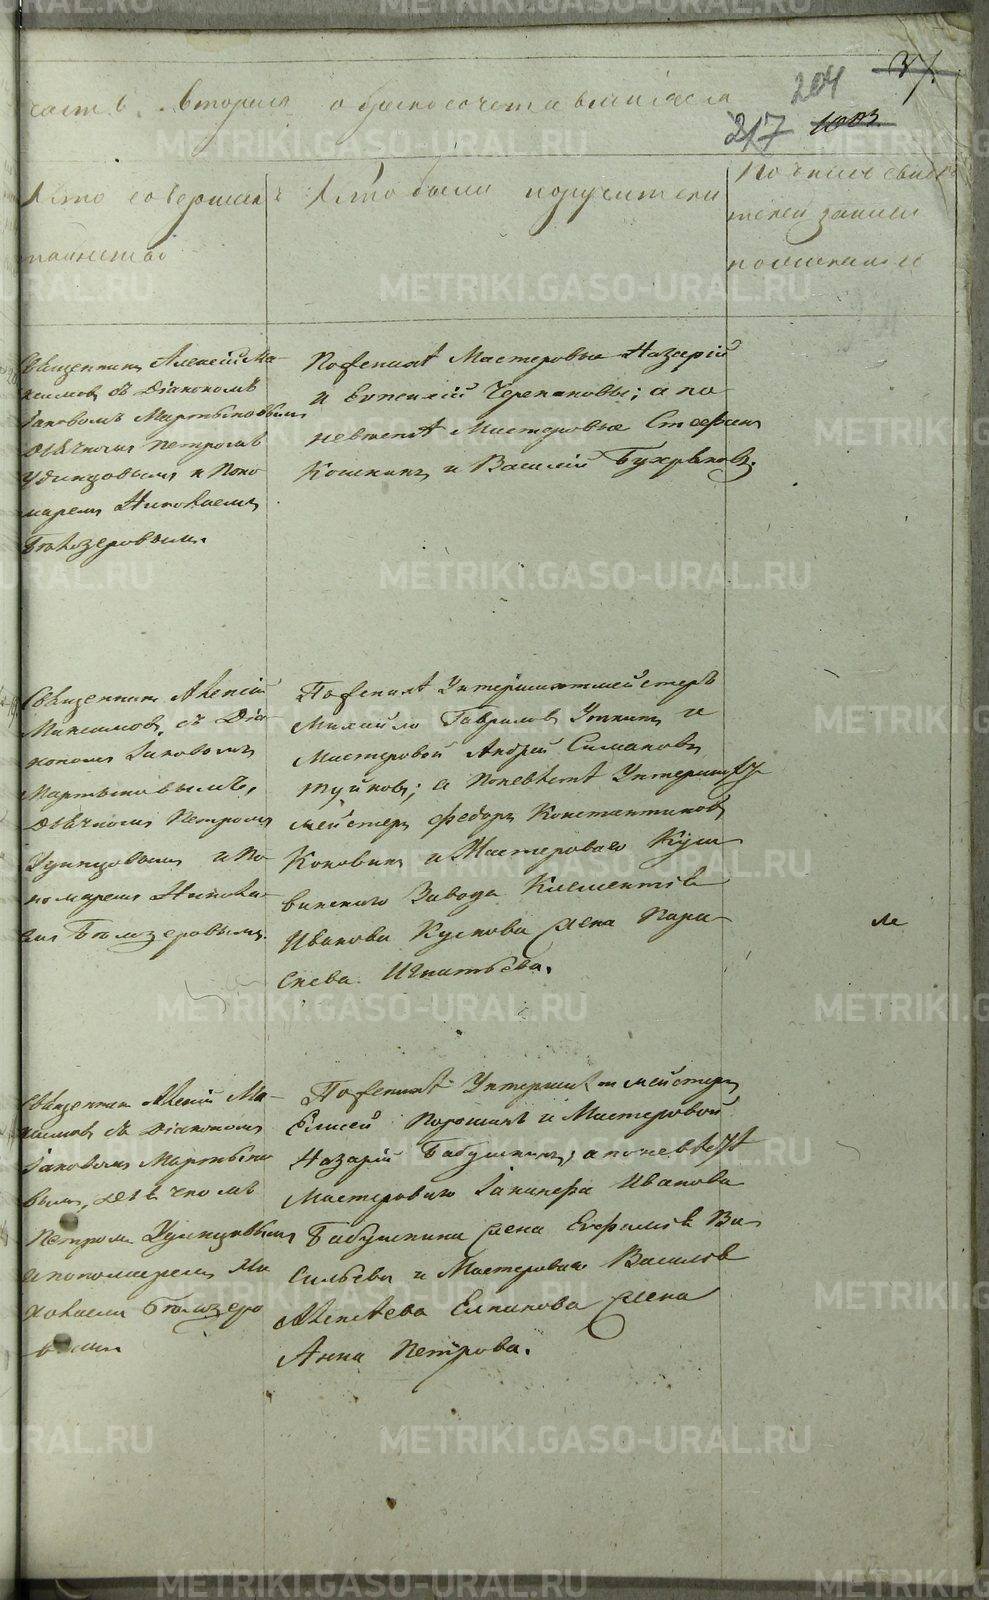 часть вторая о бракосочетавшихся
37.
204
217 1003
Кто совершал
таинство
Кто были поручители
телей записи
Священникъ Алексій Ма-
ксимовъ съ Діакономъ
Іаковомъ Мартыновымъ
Дьячкомъ Петромъ
Удинцовымъ и Поно
маремъ Николаемъ
Бѣлозеровымъ.
По женихѣ Мастеровые Назарій
и Василій Черепановы; а по
невѣстѣ Мастеровые Стефанъ
Кошкинъ и Василій
Священникъ Алексій
Максимовъ, съ Діа-
кономъ Іаковомъ
Мартыновымъ,
Дьячкомъ Петромъ
Удинцовымъ и По-
номаремъ Никола-
емъ Бѣлозеровымъ.
По женихѣ Унтершихтмейстеръ
Михайло Гаврилов Уткинъ и
Мастеровой Андрей Симановъ
а по невѣстѣ Унтершихт
мейстеръ Федоръ Константиновъ
Коновинъ и Мастероваго Куш-
винскаго Завода Клементія
Иванова Кускова жена Пара-
скева Игнатьева.
Священникъ Алексій Ма-
ксимовъ съ Діакономъ
Іаковомъ Мартыно
вымъ, Дьячкомъ
Петромъ Удинцовымъ
и пономаремъ Ни
колаемъ Бѣлозеро
вымъ.
По женихѣ Унтершихтмейстеръ
Елисей Порошинъ и Мастеровой
Назарій Бабушкинъ; а по невѣстѣ
Мастероваго Іакинфа Иванова
Бабушкина жена Евфимія Ва-
сильева и Мастероваго Василія
Алексѣева жена
Анна Петрова.
METRIKI.GASO-URAL.RU